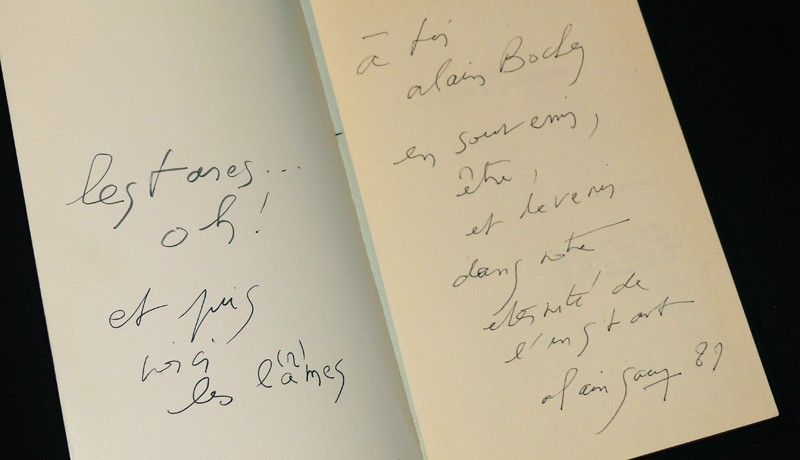 les tares...
oh!
et puis
voici
les l(n)âmes
à toi
alain
en souvenir,
être,
et devenir
dans notre
éternité de
l'instant
alain 89